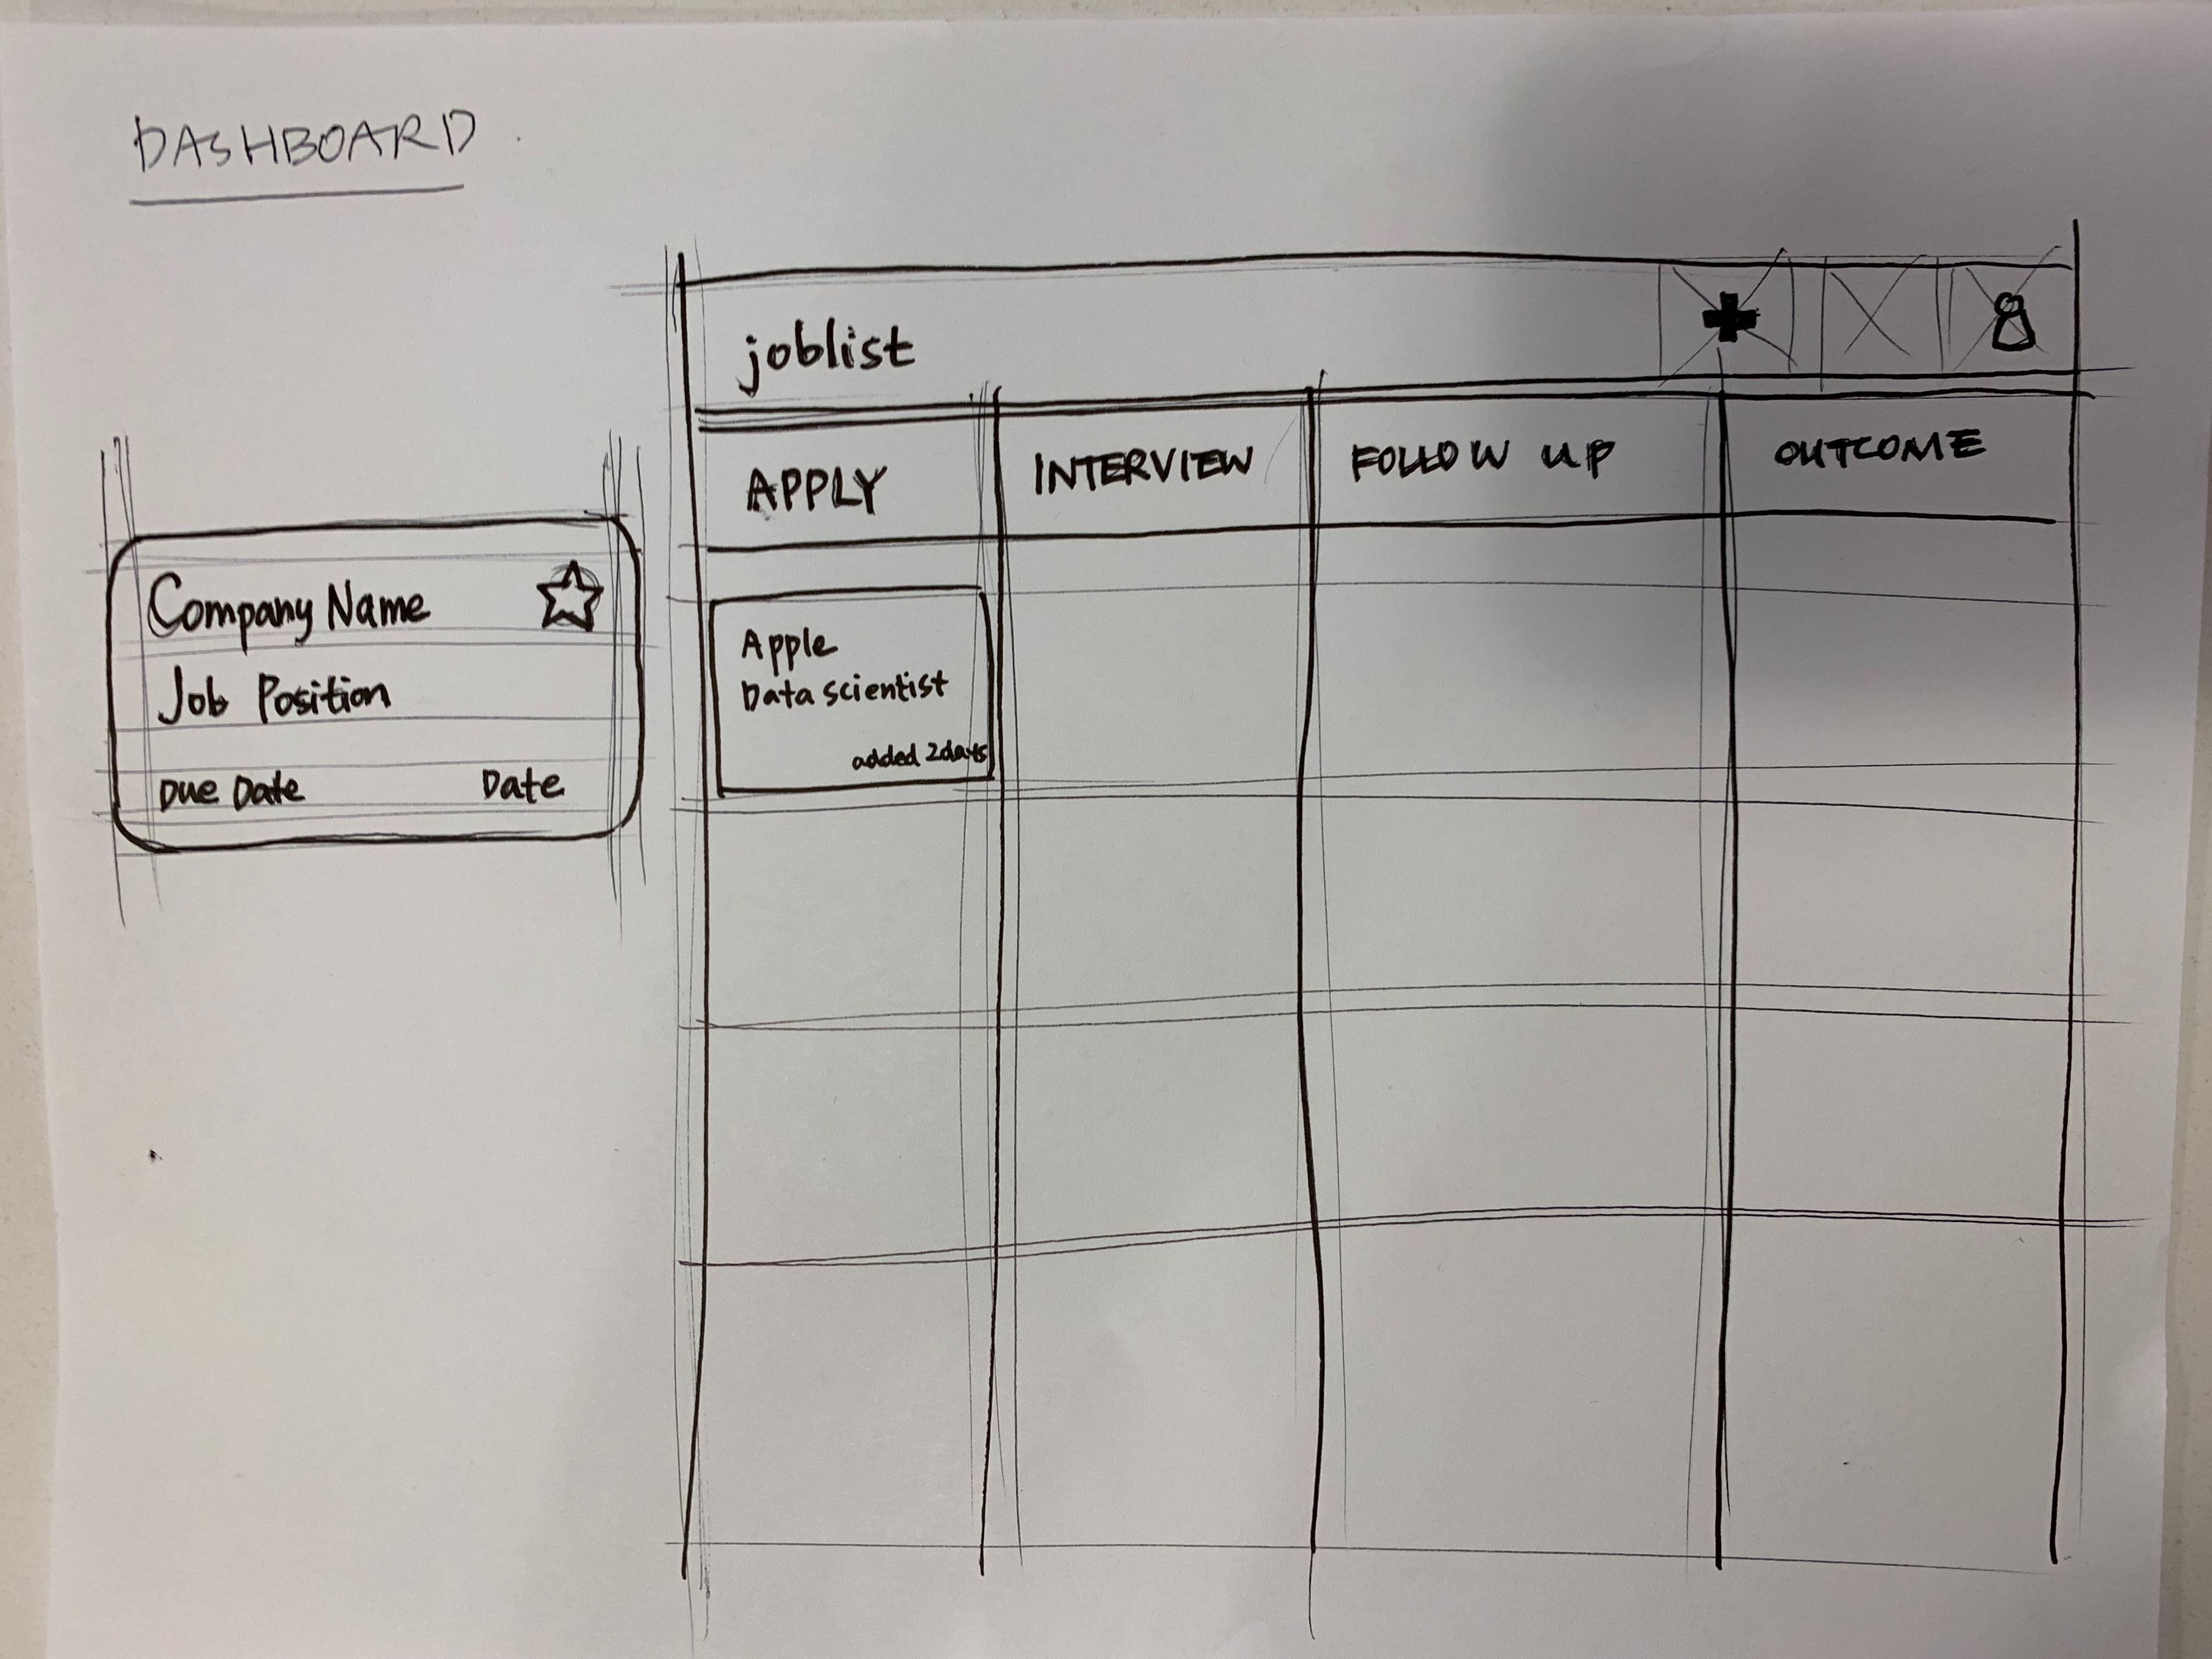 DASHBOARD
Company Name
Job Position
Due Date Date
joblist
APPLY INTERVIEW FOLLOW UP OUTCOME
Apple
Data scientist
added 2days